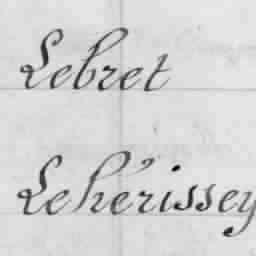 Lebret
Lehérissey